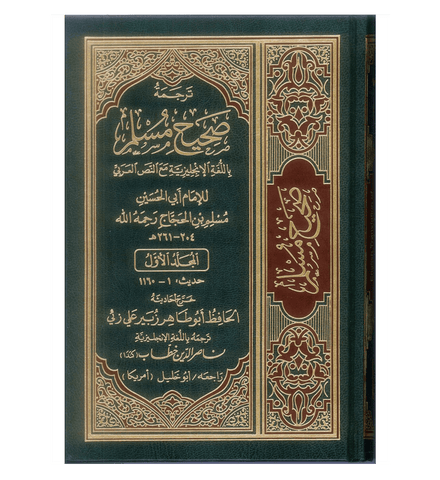 ترجمة
صحيح مسلم
باللغة الإنجليزية مع النص العربي
للإمام أبي الحسين
مسلم بن الحجاج رحمه الله
٢٠٤-٢٦١هـ
المجلد الأول
حديث: ١-١١٦٠
خرج أحاديثه
الحافظ أبو طاهر زبير علي زئي
ترجمة باللغة الإنجليزية
ناصر الدين خطاب (كندا)
راجعه/أبو خليل (أمريكا)
صحيح مسلم